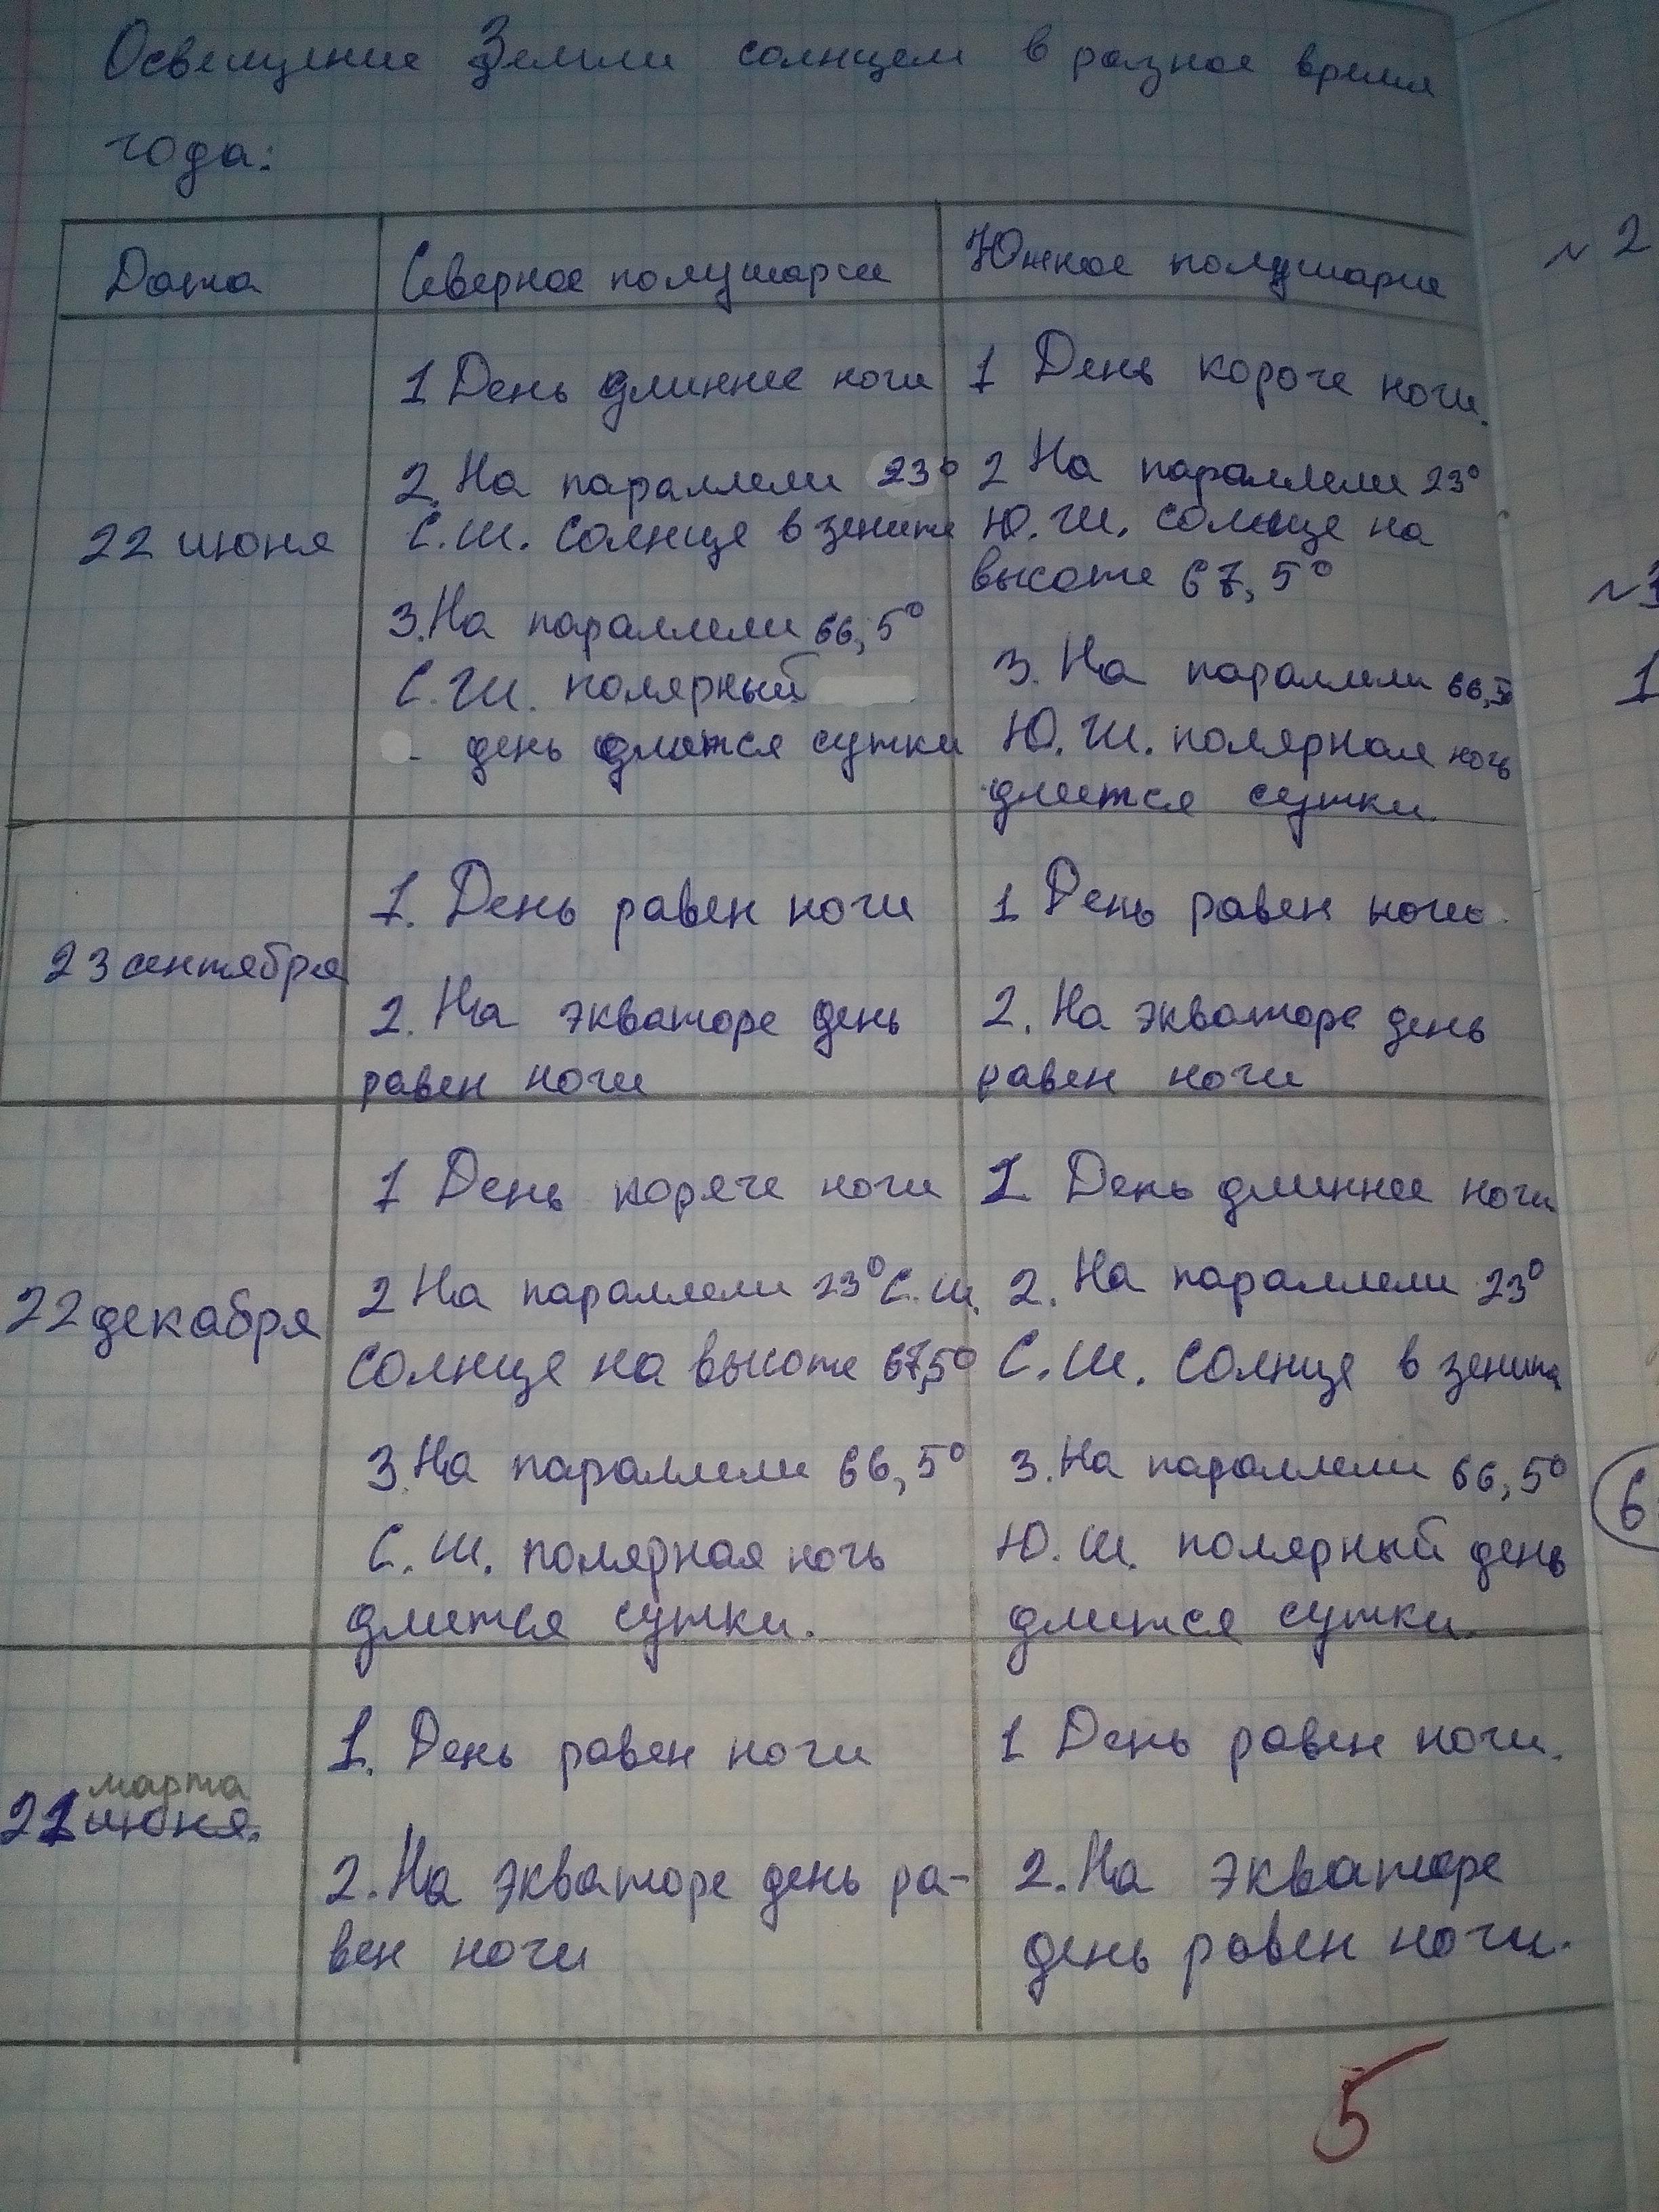 Освещение Земли солнцем в разное время
года:
Дата
Северное полушарие
Южное полушарие
22 июня
1 День длиннее ночи
2. На параллели 23°
С.Ш. солнце в зените
3. На параллели 66,5°
С.Ш. полярный
день длится сутки
1 День короче ночи.
2 На параллели 23°
Ю.Ш. солнце на
высоте 67,5°
3. На параллели 66,5°
Ю.Ш. полярная ночь
длится сутки.
23 сентября
1. День равен ночи
2. На экваторе день
равен ночи
1 День равен ночи.
2. На экваторе день
равен ночи
22 декабря
1 День короче ночи
2 На параллели 23° С.ш.
солнце на высоте 67,5°
3. На параллели 66,5°
С.Ш. полярная ночь
длится сутки.
1 День длиннее ночи
2. На параллели 23°
С.Ш. солнце в зените
3. На параллели 66,5°
Ю.Ш. полярный день
длится сутки.
марта
21 июня.
1. День равен ночи
2. На экваторе день ра-
вен ночи
1 День равен ночи.
2. На экваторе
день равен ночи.
5
~2
1
6